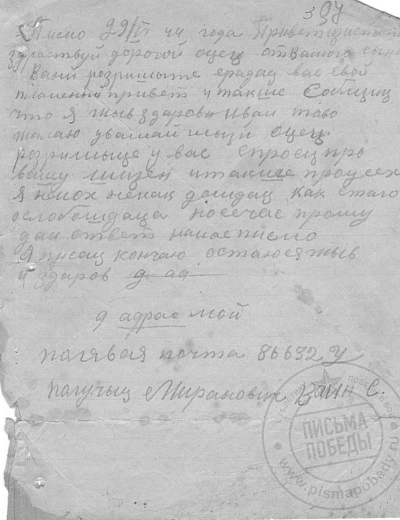 397
Писмо 29/VI 44 года Привет
здраствуй дорогой оцец от вашого сына
Вани розришыте ерадац вас свой
пламенный привет и также Сообщиц
что я жыв здаров и вам таво
жалаю уважаймыый оцец
розришыце у вас спросец про
вашу жизен и также про усех
я ниох некак дождац как стаго
ослобождаца носечас прошу
дай ответ на мае писмо
я писац кончаю остаюся жыв
и здаров
адрас мой
палявая почта 86632 У
палучыц Миранович Ваин С.
ПИСЬМА
ПОБЕДЫ
www.pismapobedy.ru